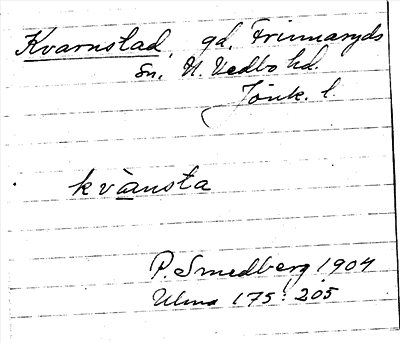 Kvarnstad, gd, Frinnaryds
sn, N. Vedbo hd.
Jönk. l.
kvànsta
P. Smedberg 1904
Ulma 175: 205